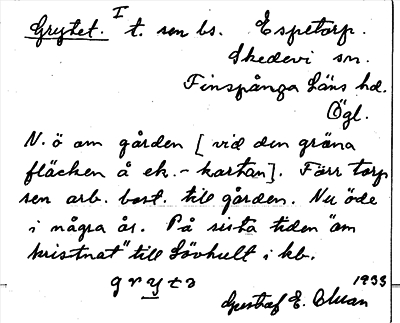 Grytet. I t. sen bs. Espetorp.
Skedevi sn.
Finspånga Läns hd.
Ögl.
N. ö om gården [vid den gröna
fläcken å ek.-kartan]. Förr torp
sen arb. bost. till gården. Nu öde
i några år. På sista tiden "om
kristnat" till Lövhult i kb.
grytə 1933
Gustaf E. Olman